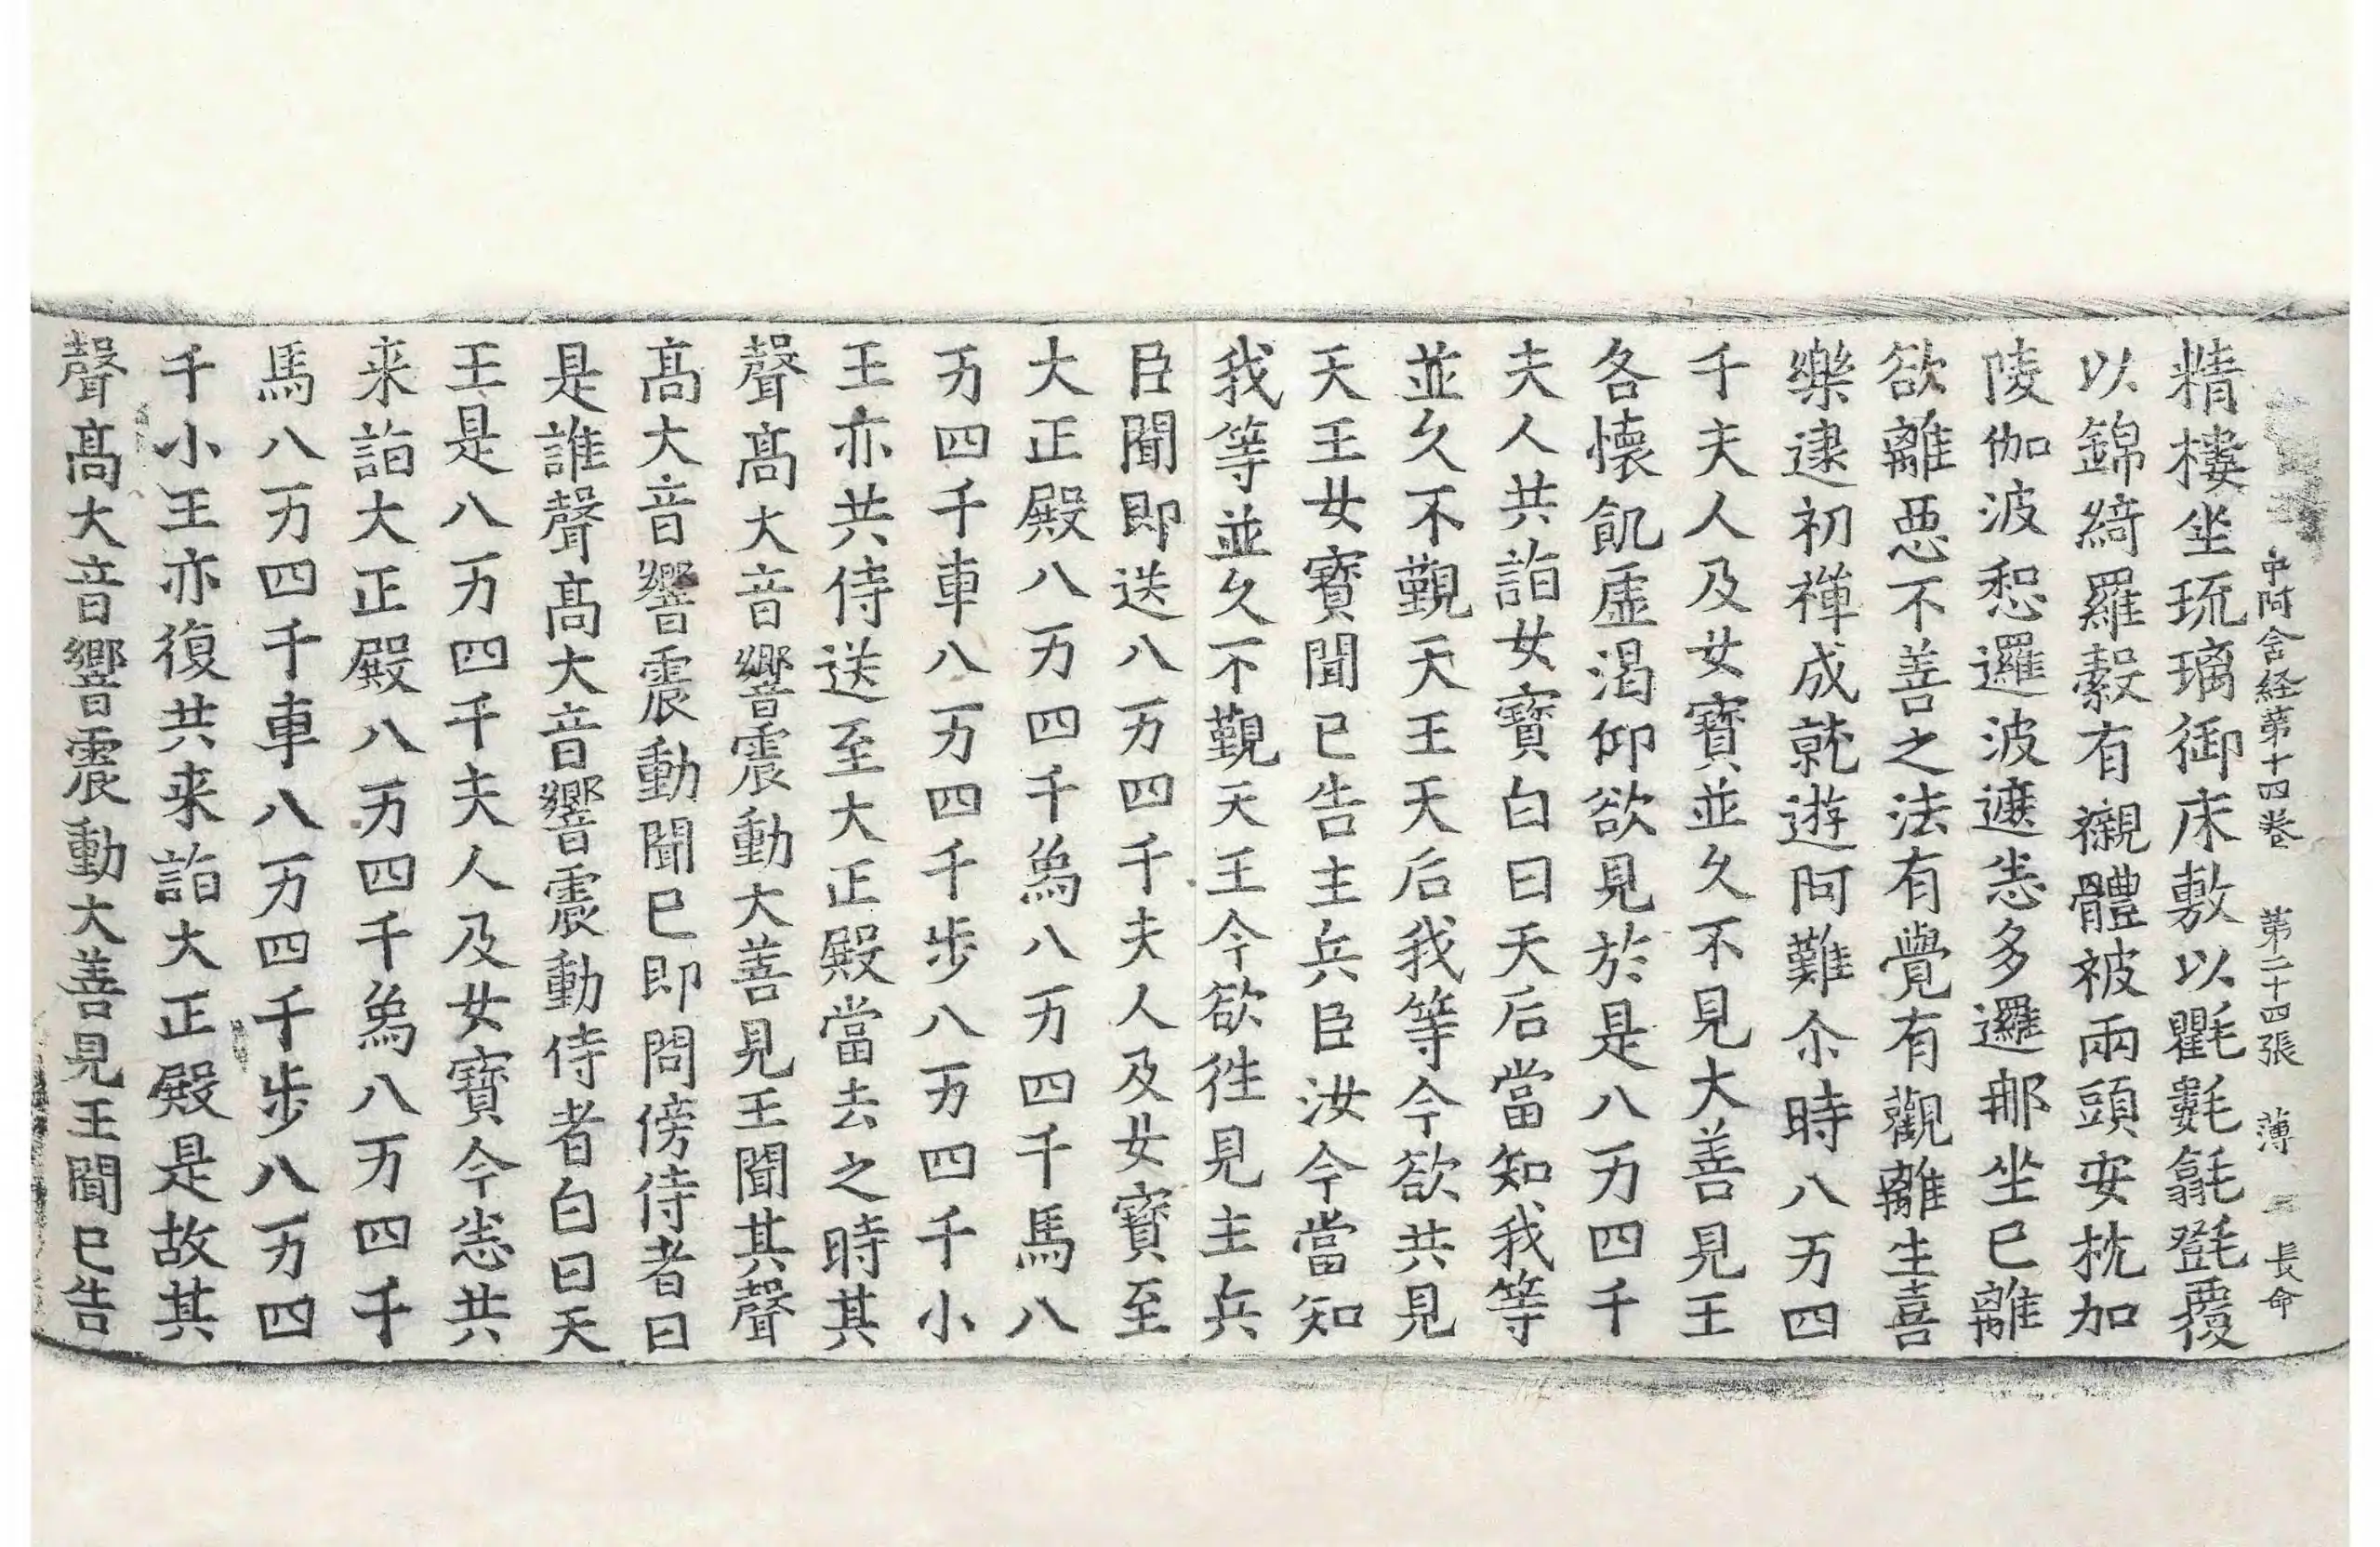 中阿含経第十四巻 第二十四張 薄 長命
精樓坐琉璃御床敷以氍氀毾㲪覆
以錦綺羅縠有襯體被兩頭安枕加
陵伽波惒邏波遮悉多邏那坐已離
欲離惡不善之法有覺有觀離生喜
樂逮初禅成就遊阿難尒時八万四
千夫人及女寶並久不見大善見王
各懷飢虛渴仰欲見於是八万四千
夫人共詣女寶白曰天后當知我等
並久不覲天王天后我等今欲共見
天王女寶聞已告主兵臣汝今當知
我等並久不覲天王今欲徃見主兵
臣聞即送八万四千夫人及女寶至
大正殿八万四千為八万四千馬八
万四千車八万四千歩八万四千小
王亦共侍送至大正殿當去之時其
聲髙大音響震動大善見王聞其聲
髙大音響震動聞已即問傍侍者曰
是誰聲髙大音響震動侍者白曰天
王是八万四千夫人及女寶今悉共
来詣大正殿八万四千為八万四千
馬八万四千車八万四千歩八万四
千小王亦復共来詣大正殿是故其
聲髙大音響震動大善見王聞已告